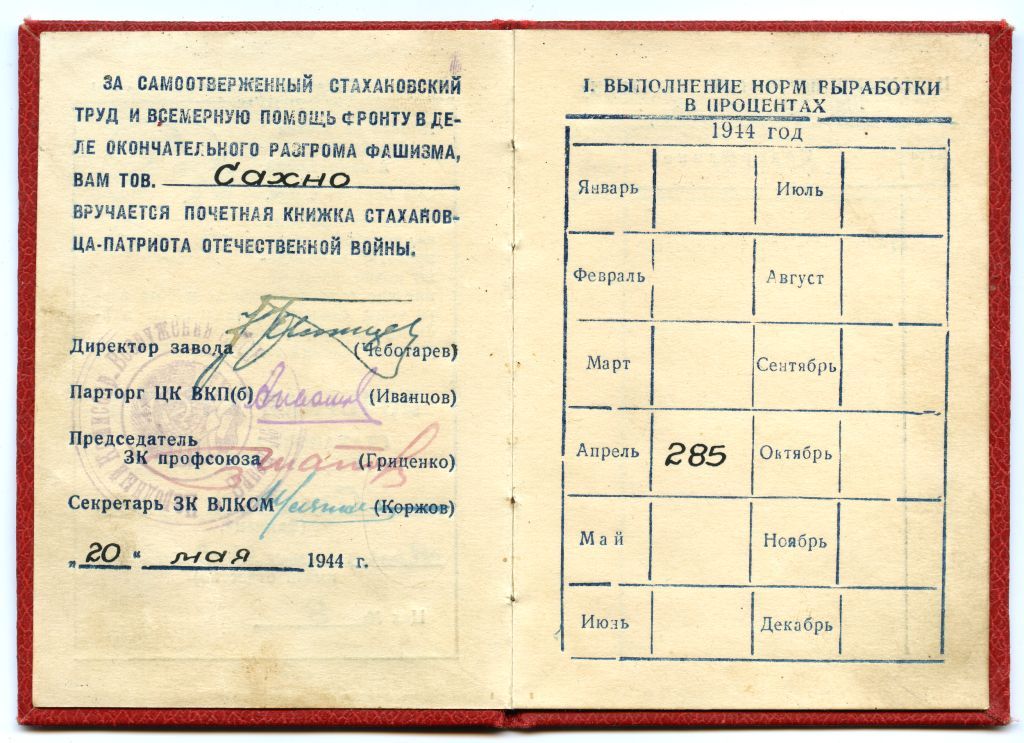 ЗА САМООТВЕРЖЕННЫЙ СТАХАНОВСКИЙ
ТРУД И ВСЕМЕРНУЮ ПОМОЩЬ ФРОНТУ В ДЕ-
ЛЕ ОКОНЧАТЕЛЬНОГО РАЗГРОМА ФАШИЗМА,
ВАМ ТОВ. Сахно
ВРУЧАЕТСЯ ПОЧЕТНАЯ КНИЖКА СТАХАНОВ-
ЦА-ПАТРИОТА ОТЕЧЕСТВЕННОЙ ВОЙНЫ.
Директор завода (Чеботарев)
Парторг ЦК ВКП(б) (Иванцов)
Председатель
ЗК профсоюза (Гриценко)
Секретарь ЗК ВЛКСМ (Коржов)
„20“ мая 1944 г.
I. ВЫПОЛНЕНИЕ НОРМ ВЫРАБОТКИ
В ПРОЦЕНТАХ
1944 год
Январь Июль
Февраль Август
Март Сентябрь
Апрель 285 Октябрь
Май Ноябрь
Июнь Декабрь